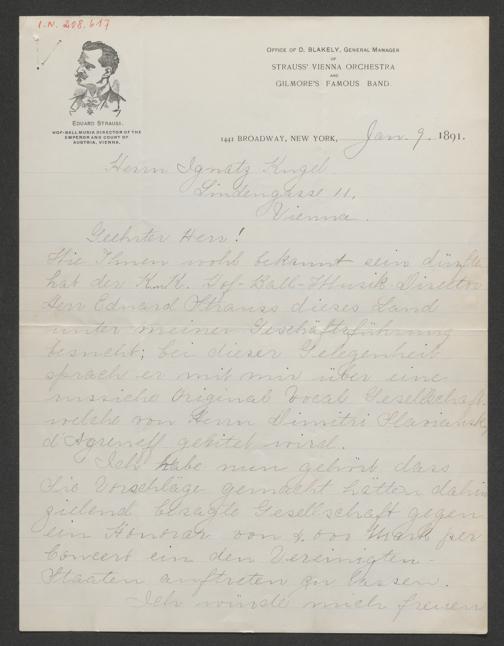 I.N. 208.617
OFFICE OF D. BLAKELY, GENERAL MANAGER
OF
STRAUSS' VIENNA ORCHESTRA
AND
GILMORE'S FAMOUS BAND
EDUARD STRAUSS.
HOF-BALL MUSIK DIRECTOR OF THE
EMPEROR AND COURT OF
AUSTRIA, VIENNA.
1441 BROADWAY, NEW YORK, Jan. 9. 1891.
Herrn Ignatz Kugel
Lindengasse 11.
Vienna.
Geehrter Herr!
Wie Ihnen wohl bekannt sein dürfte
hat der K. K. Hof-Ball-Musik Director
Herr Eduard Strauss dieses Land
unter meiner Geschäftsführung
besucht; bei dieser Gelegenheit
sprach er mit mir über eine
russische Original Vocal Gesellschaft,
welche von Herrn Dimitri Slaviansky
d'Agreneff geleitet wird.
Ich habe nun gehört dass
Sie Vorschläge gemacht hätten dahin
zielend besagte Gesellschaft gegen
ein Honorar von Mark per
Concert in den Vereinigten-
Staaten auftreten zu lassen.
Ich würde mich freuen